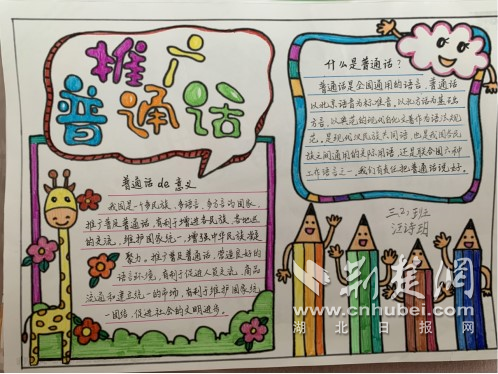 推广
普通话
普通话de意义
我国是一个多民族、多语言、多方言的国家,
推广普及普通话,有利于增进各民族、各地区
的交流,维护国家统一,增强中华民族凝
聚力。推广普及普通话,营造良好的
语言环境,有利于促进人员交流,商品
流通和建立统一的市场,有利于维护国家统
一团结,促进社会的文明进步。
什么是普通话?
普通话是全国通用的语言。普通话
以北京语音为标准音,以北方话为基础
方言,以典范的现代白话文著作为语法规
范,是现代汉民族共同语,也是我国各民
族之间通用的交际用语,还是联合国六种
工作语言之一,我们有责任把普通话说好。
班
汪诗
荆楚网
www.cnhubei.com
湖北日报网